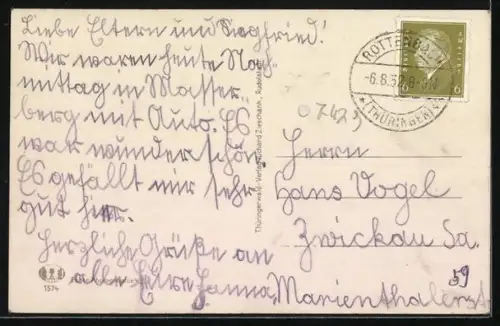 Liebe Eltern und Siegfried!
Wir waren heute Nach
mittag in Masser
berg mit Auto. Es
war wunderschön.
Es gefällt mir sehr
gut hier.
Herzliche Grüße an
alle Eure Hanna.
1574
Thüringerwald-Verlag Richard Zieschank, Rudolstadt
ROTTENBACH
-6.8.32.8-9V
(THÜRINGEN)
6
0742
Herrn
Hans Vogel
Zwickau Sa.
59
Marienthalerstr